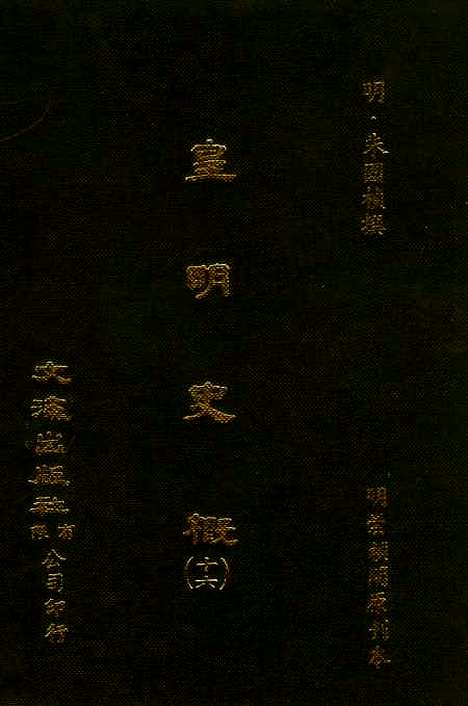 明·朱國楨撰
明崇禎間原刊本
皇明史概(十六)
文海出版社有限公司印行